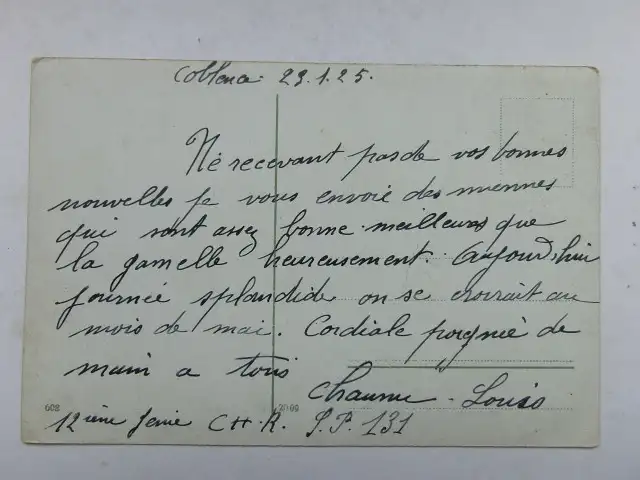 Coblenz. 29.1.25.
Né recevant pas de vos bonnes
nouvelles je vous envoie des miennes
qui sont assez bonne meilleures que
la gamelle heureusement. Aujourd'hui
journée splendide on se croirait au
mois de mai. Cordiale poignée de
main a tous
Chaume Louis
12ième Génie C.H.R. S.P. 131
608